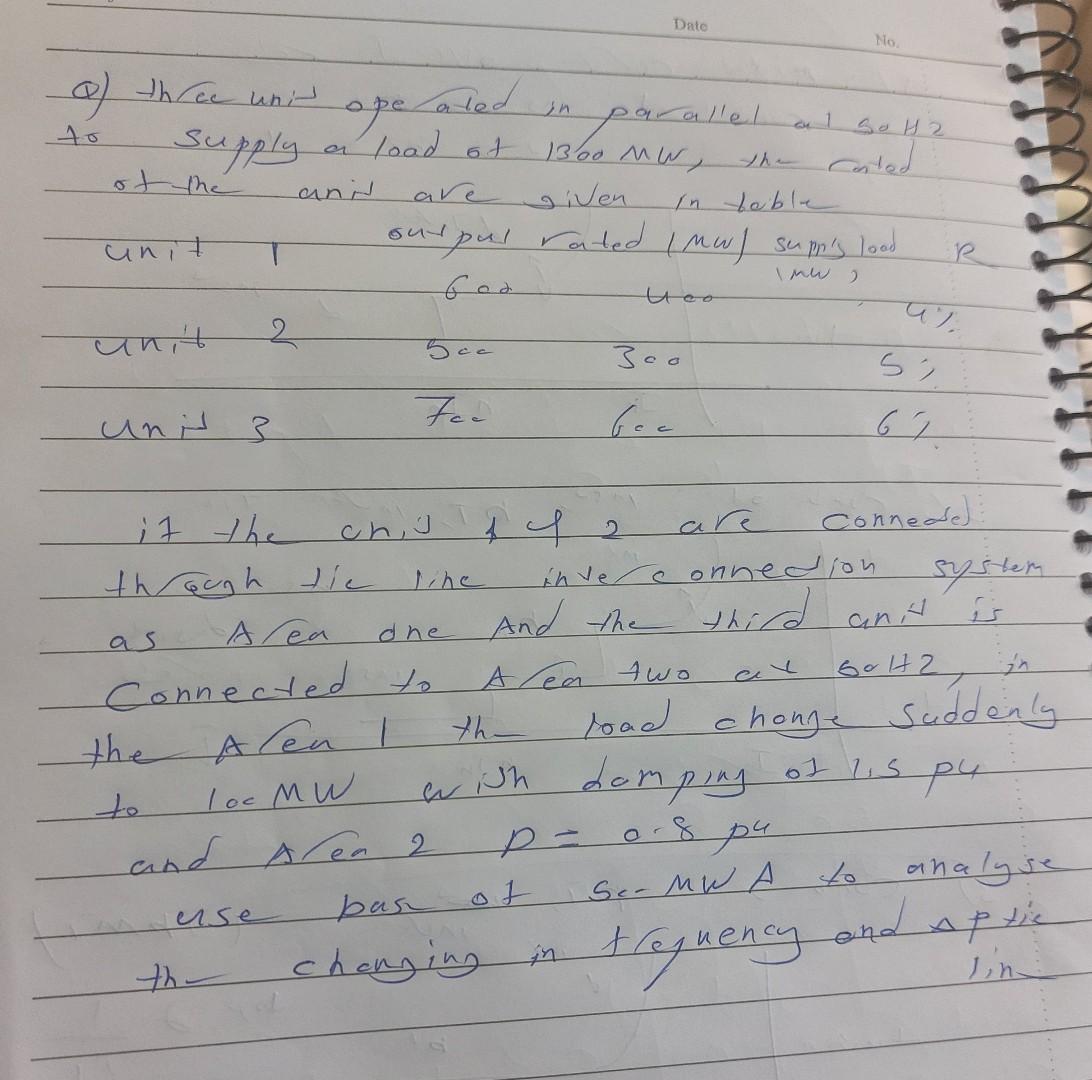 Date
No.
Q) three unit operated in parallel at 50 HZ
to supply a load of 1300 MW, the rated
of the unit are given in table
unit 1 output rated (MW) supply load R
(MW)
600 400 4%
unit 2 500 300 5%
unit 3 700 600 6%
if the unit 1 & 2 are connected
through tie line interconnection system
as Area one And the third unit is
Connected to Area two at 50 HZ, in
the Area 1 the load change suddenly
to 100 MW with damping of 1.5 pu
and Area 2 D = 0.8 pu
use base of MWA to analyse
the changing in frequency and Δp tie
line